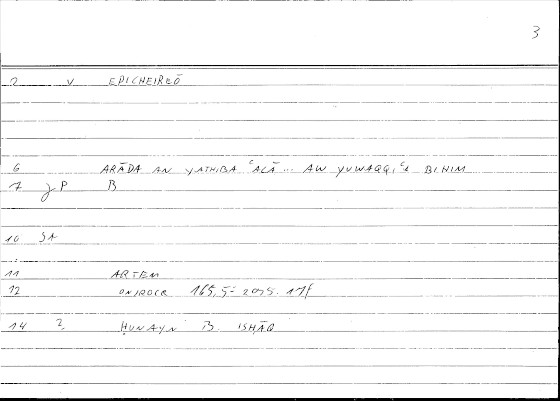 3
2 v EPICHEIREŌ
6 ARĀDA AN YATHIBA ʿALĀ... AW YUWAQQIʿA BIHIM
7 P B
10
11 ARTEM
12 ONIROCR 165,5
14 ? ḤUNAYN B. ISḤĀQ